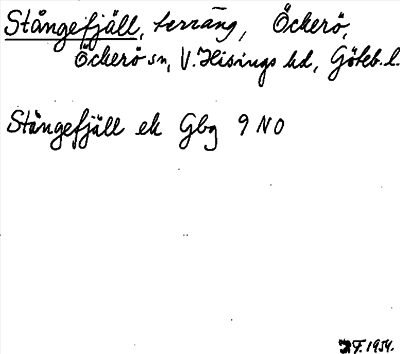 Stångefjäll, terräng, Öckerö,
Öckerö sn, V. Hisings hd, Göteb. l.
Stångefjäll ek Gbg 9 NO
F. 1934.